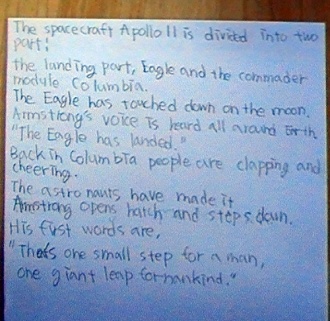 The spacecraft Apollo 11 is divided into two
part:
the landing part, Eagle and the commader
module Columbia.
The Eagle has touched down on the moon.
Armstrong's voice is heard all around Erth
"The Eagle has landed."
Back in Columbia people are clapping and
cheering.
The astronauts have made it
Amstrong opens hatch and steps down.
His first words are,
"Thats one small step for a man,
one giant leap for mankind."